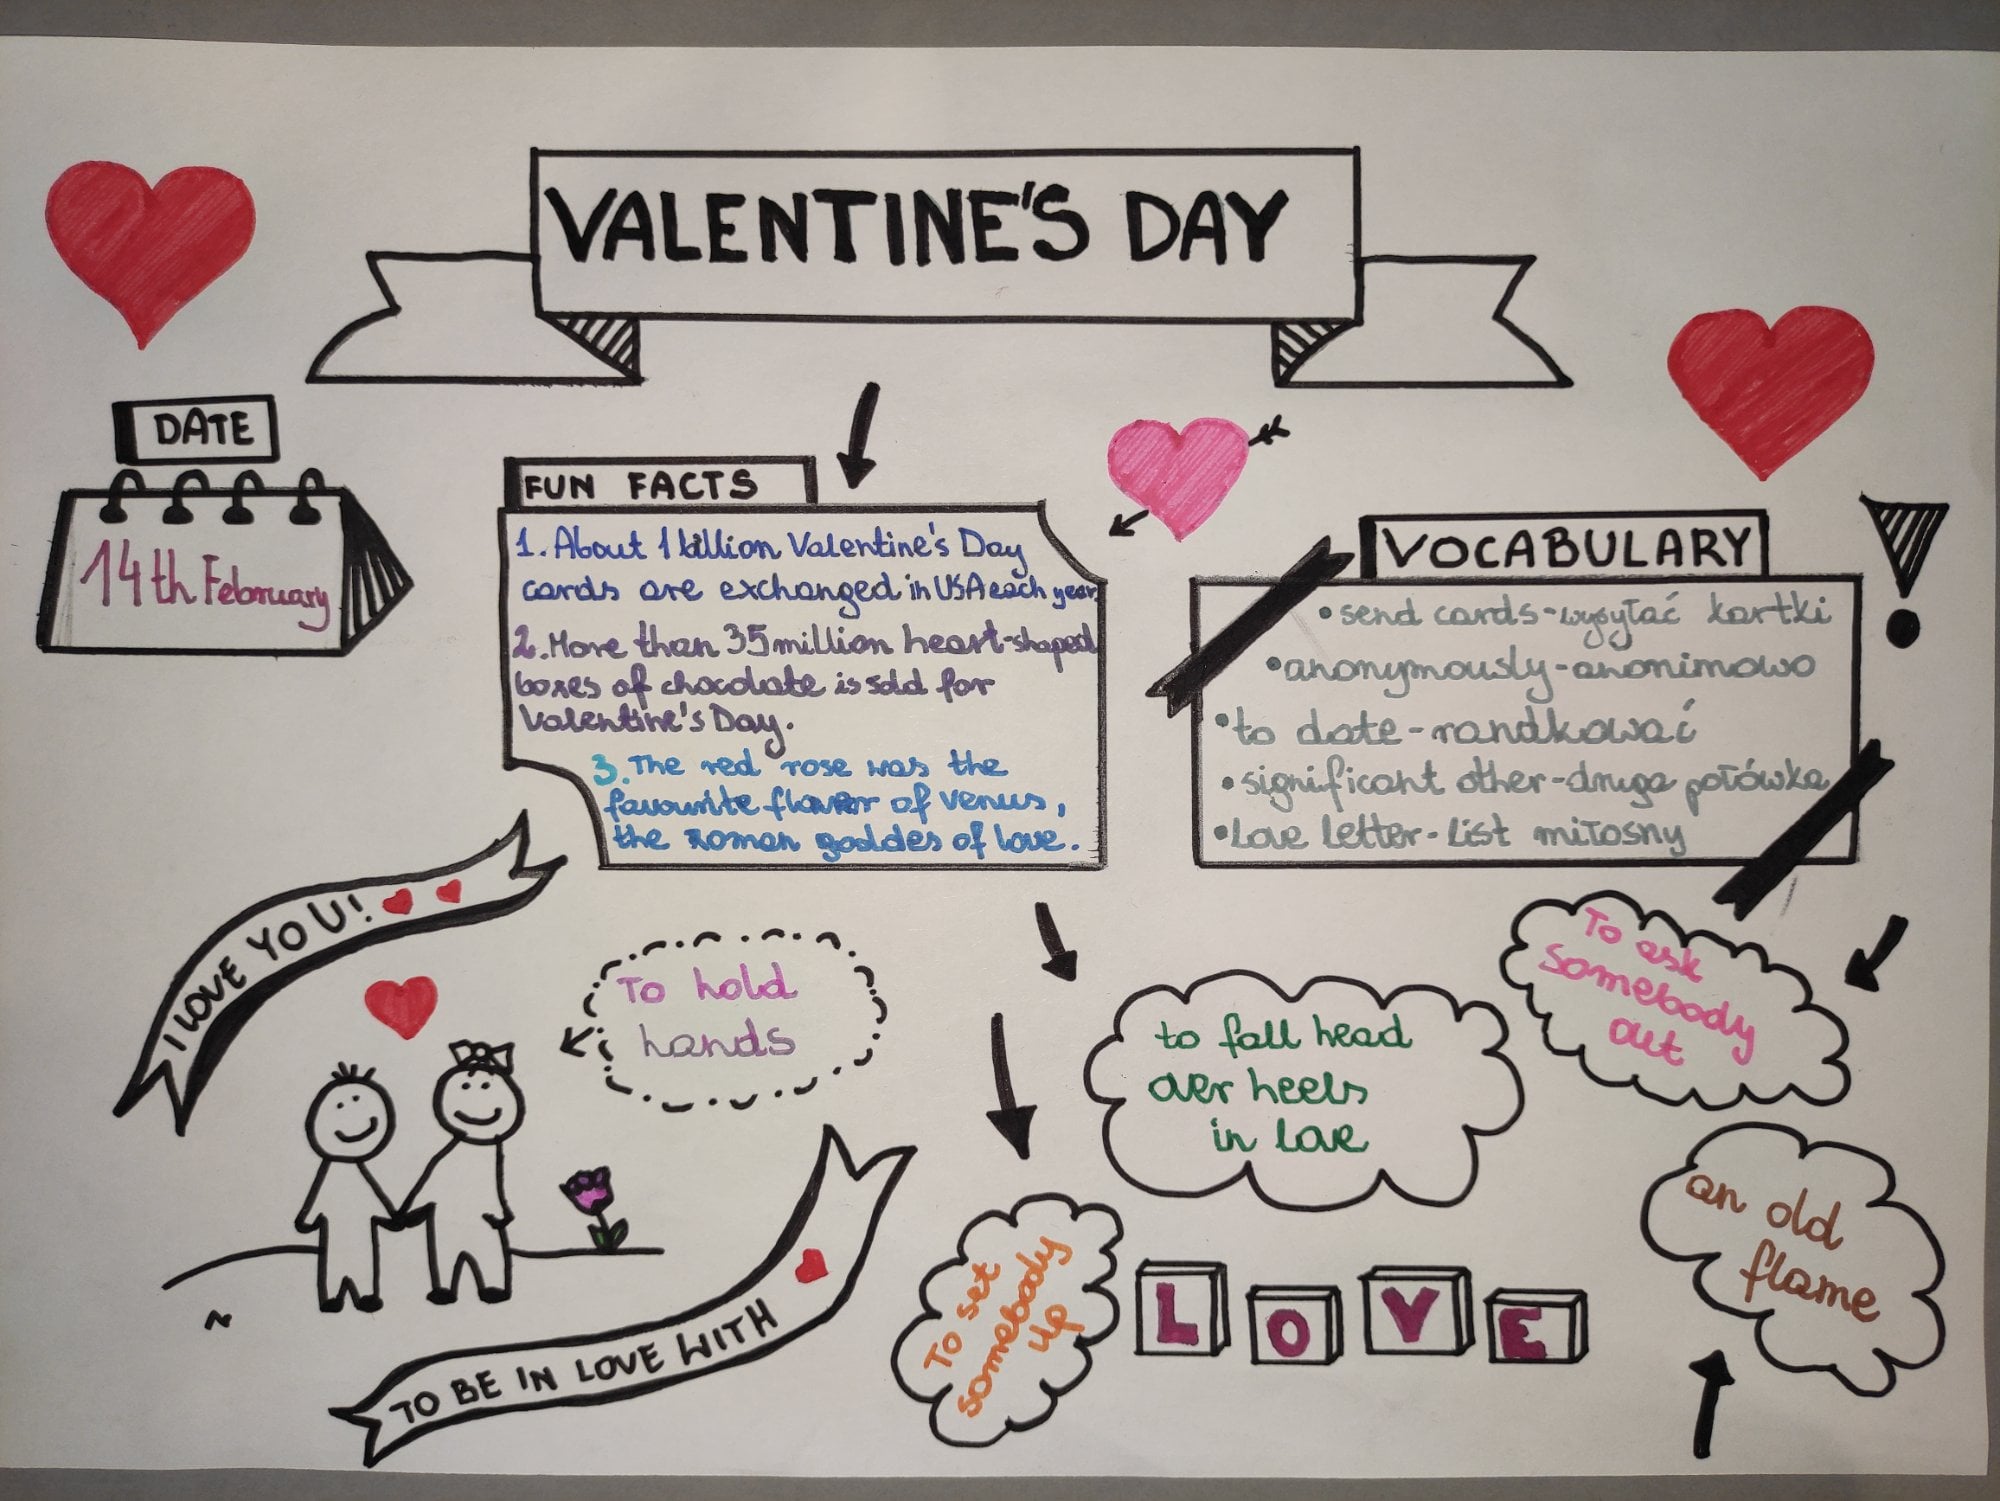 VALENTINE'S DAY
DATE
14th February
FUN FACTS
1. About 1 billion Valentine's Day
cards are exchanged in USA each year.
2. More than 35 million heart-shaped
boxes of chocolate is sold for
Valentine's Day.
3. The red rose was the
favourite flower of Venus,
the Roman goddes of love.
VOCABULARY
•send cards-wysyłać kartki
•anonymously-anonimowo
•to date-randkować
•significant other-druga połówka
•Love Letter-List miłosny
I LOVE YOU!
To hold
hands
to fall head
over heels
in love
To ask
somebody
out
an old
flame
To set
somebody
up
LOVE
TO BE IN LOVE WITH